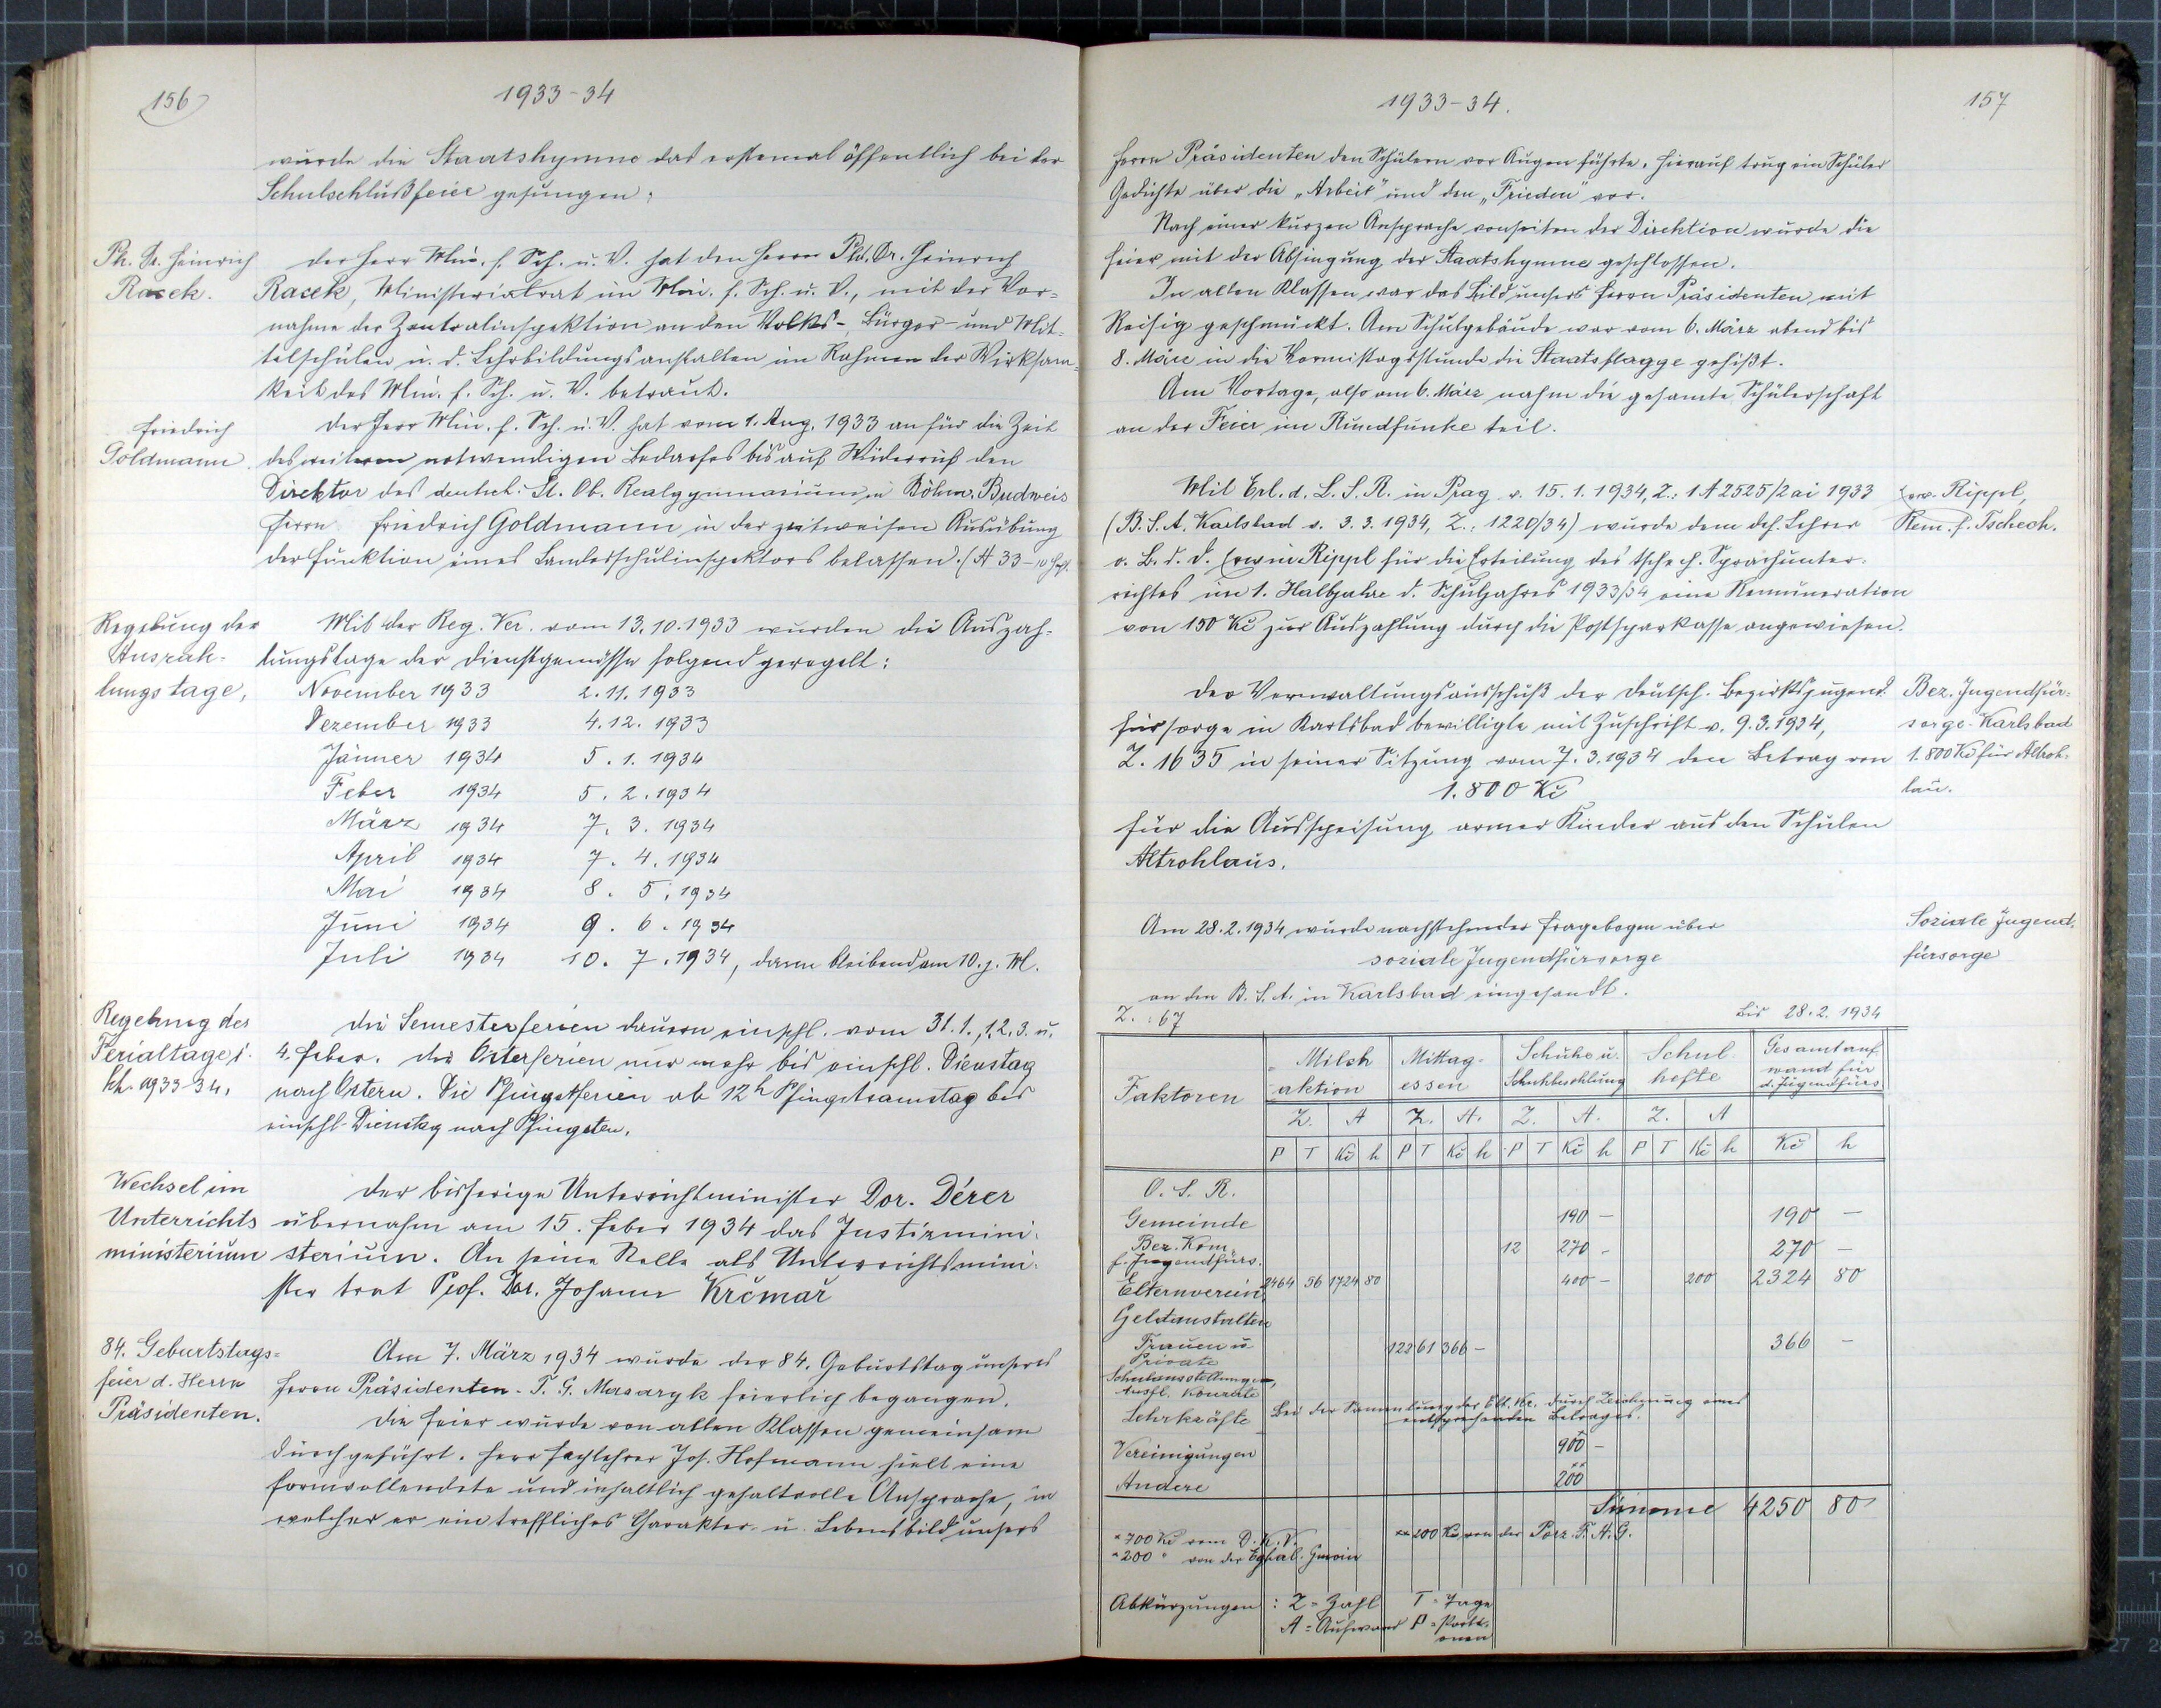 156
1933-34
wurde die Staatshymne das erstemal öffentlich bei der
Schulschlußfeier gesungen.
Ph. Dr. Heinrich
Racek.
Der Herr Min. f. Sch. u. V. hat den Herrn Phd. Dr. Heinrich
Racek, Ministerialrat im Min. f. Sch. u. V., mit der Vor=
nahme der Zentralinspektion an den Volks-, Bürger- und Mit-
telschulen u. d. Lehrbildungsanstalten im Rahmen der Wirksam-
keit des Min. f. Sch. u. V. betraut.
Friedrich
Goldmann
Der Herr Min. f. Sch. u. V. hat vom 1. Aug. 1933 an für die Zeit
des weiteren notwendigen Bedarfes bis auf Widerruf den
Direktor des deutsch. St. Ob. Realgymnasiums in Böhm. Budweis
Herrn Friedrich Goldmann in der zeitweisen Ausübung
der Funktion eines Landesschulinspektors belassen. (A 33-10
Regelung der
Auszah-
lungstage,
Mit der Reg. Ver. vom 13.10.1933 wurden die Auszah-
lungstage der Dienstgenüsse folgend geregelt:
November 1933 2.11.1933
Dezember 1933 4.12.1933
Jänner 1934 5.1.1934
Feber 1934 5.2.1934
März 1934 7.3.1934
April 1934 7.4.1934
Mai 1934 8.5.1934
Juni 1934 9.6.1934
Juli 1934 10.7.1934, dann bleibend am 10. j. M.
Regelung der
Ferialtage i.
1933-34.
Die Semesterferien dauern einschl. vom 31.1., 1. 2. 3. u.
4. Feber. Die Osterferien nur mehr bis einschl. Dienstag
nach Ostern. Die Pfingstferien ab 12h Pfingstsamstag bis
einschl. Dienstag nach Pfingsten.
Wechsel im
Unterrichts
ministerium
Der bisherige Unterrichtminister Dor. Dérer
übernahm am 15. Feber 1934 das Justizmini-
sterium. An seine Stelle als Unterrichtsmini-
ster trat Prof. Dor. Johann Krčmař
84. Geburtstags=
feier d. Herrn
Präsidenten.
Am 7. März 1934 wurde der 84. Geburtstag unseres
Herrn Präsidenten T. G. Masaryk feierlich begangen.
Die Feier wurde von allen Klassen gemeinsam
durchgeführt. Herr Fachlehrer Jos. Hofmann hielt eine
formvollendete und inhaltlich gehaltvolle Ansprache, in
welcher er ein treffliches Charakter- u. Lebensbild unsers
1933-34.
157
Herrn Präsidenten den Schülern vor Augen führte. Hierauf trug ein Schüler
Gedichte über die „Arbeit" und den „Frieden" vor.
Nach einer kurzen Ansprache vonseiten der Direktion wurde die
Feier mit der Absingung der Staatshymne geschlossen.
In allen Klassen war das Bild unsers Herrn Präsidenten mit
Reisig geschmückt. Am Schulgebäude war vom 6. März abend bis
8. März in die Vormittagsstunde die Staatsflagge gehißt.
Am Vortage, also am 6. März nahm die gesamte Schülerschaft
an der Feier im Rundfunke teil.
Mit Erl. d. L. S. R. in Prag v. 15.1.1934, Z.: 1 A 2525/2 ai 1933
(B. S. A. Karlsbad v. 3.3.1934, Z.: 1220/34) wurde dem def. Lehrer
o. B. d. D. Erwin Rippl für die Erteilung des tschech. Sprachunter-
richtes im 1. Halbjahre d. Schuljahres 1933/34 eine Remuneration
von 150 Kč zur Auszahlung durch die Postsparkasse angewiesen.
Erw. Rippl,
Rem. f. Tschech.
Der Verwaltungsausschuß der Deutsch. Bezirksjugend-
fürsorge in Karlsbad bewilligte mit Zuschrift v. 9.3.1934,
Z. 1635 in seiner Sitzung vom 7.3.1934 den Betrag von
1.800 Kč
für die Ausspeisung armer Kinder aus den Schulen
Altrohlaus.
Bez. Jugendfür=
sorge Karlsbad
1.800 Kč für Altroh-
lau.
Am 28.2.1934 wurde nachstehender Fragebogen über
soziale Jugendfürsorge
an den B. S. A. in Karlsbad eingesandt.
Soziale Jugend-
fürsorge
Z.: 67 Bis 28.2.1934
Faktoren Milch aktion Mittag- essen Schuhe u. Schuhbesohlung Schul hefte Gesamtauf wand für d. Jugendfürs.
Z. A Z. A. Z. A. Z. A
P T Kč h P T Kč h P T Kč h P T Kč h Kč h
O. S. R.
Gemeinde 190 - 190 -
Bez. Kom. f. Jugendfürs. 12 270 - 270 -
Elternverein 2464 56 1724 80 400 - 200 2324 80
Geldanstalten
Frauen u. Private 122 61 366 - 366 -
Schulausstellungen, Ausfl. Konzerte
Lehrkräfte Bei der Sammlung durch Zeichnung eines
entsprechenden Betrages.
Vereinigungen 900 -
Andere 200
Summe 4250 80
* 700 Kč vom D. K. V. ** 200 Kč von der Porz. F. A. G.
* 200 " von der Egherl. Gmoin
Abkürzungen: Z = Zahl T = Tage
A = Aufwand P = Porti-
onen